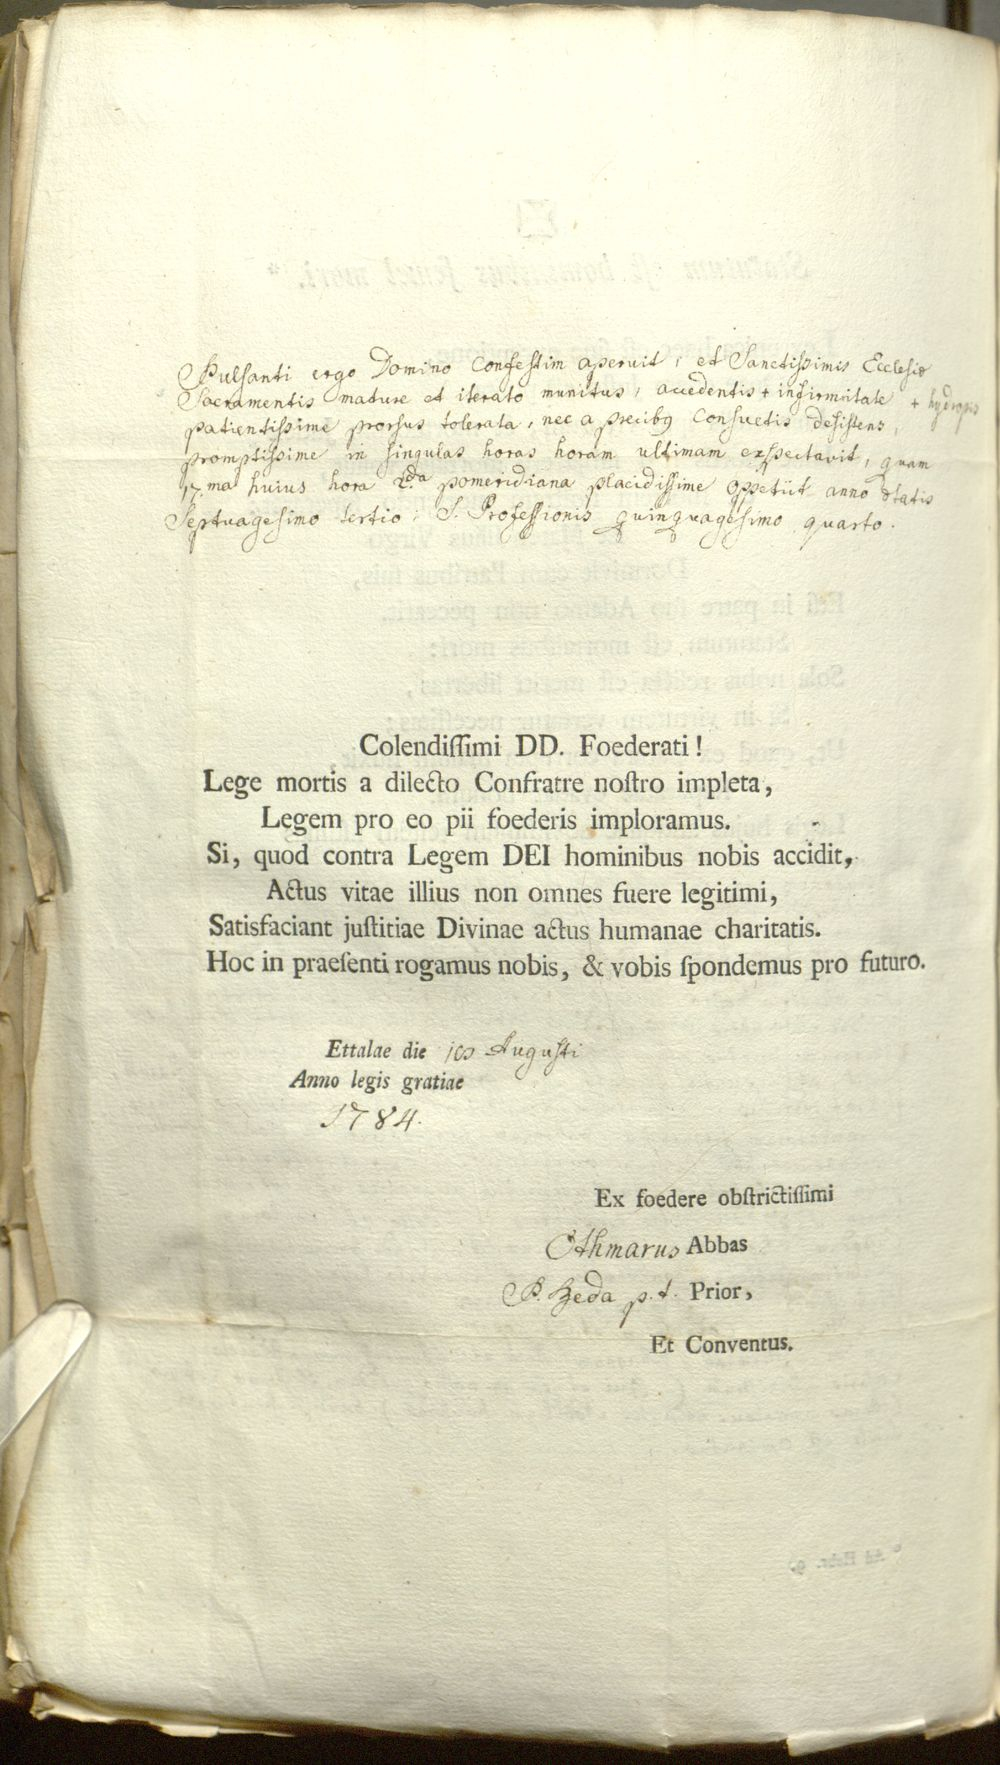 Pulsanti ergo Domino confestim aperuit, et Sanctissimis Ecclesiæ
Sacramentis mature et iterato munitus, accedentis + infirmitate + hydropis
patientissime prorsus tolerata, nec a precibq consuetis desistens,
promptissime in singulas horas horam ultimam exspectavit, quam
17.ma huius hora 2.da pomeridiana placidissime oppetiit anno ætatis
Septuagesimo tertio, S. Professionis quinquagesimo quarto.
Colendiſſimi DD. Foederati!
Lege mortis a dilecto Confratre noſtro impleta,
Legem pro eo pii foederis imploramus.
Si, quod contra Legem DEI hominibus nobis accidit,
Actus vitae illius non omnes fuere legitimi,
Satisfaciant juſtitiae Divinae actus humanae charitatis.
Hoc in praeſenti rogamus nobis, & vobis ſpondemus pro futuro.
Ettalae die Augusti
Anno legis gratiae
1784.
Ex foedere obſtrictiſſimi
Othmarus Abbas
P. Beda p.t. Prior,
Et Conventus.